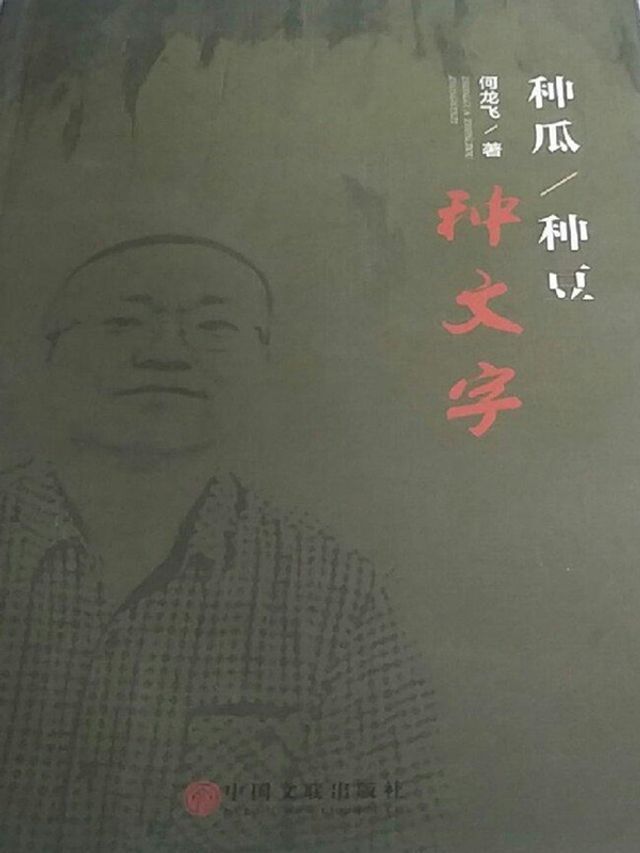 种瓜/种豆
种文字
何龙飞/著
中国文联出版社